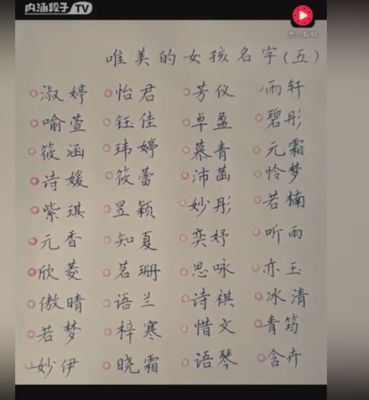 内涵段子 TV
唯美的女孩名字(五)
淑婷 怡君 芳仪 雨轩
喻萱 钰佳 卓盈 碧彤
筱涵 玮婷 慕青 元霜
诗媛 筱蕾 沛菡 怜梦
紫琪 昱颖 妙彤 若楠
元香 知夏 奕妤 听雨
欣菱 茗珊 思咏 亦玉
傲晴 语兰 诗祺 冰清
若梦 梓寒 惜文 青筠
妙伊 晓霜 语琴 含卉